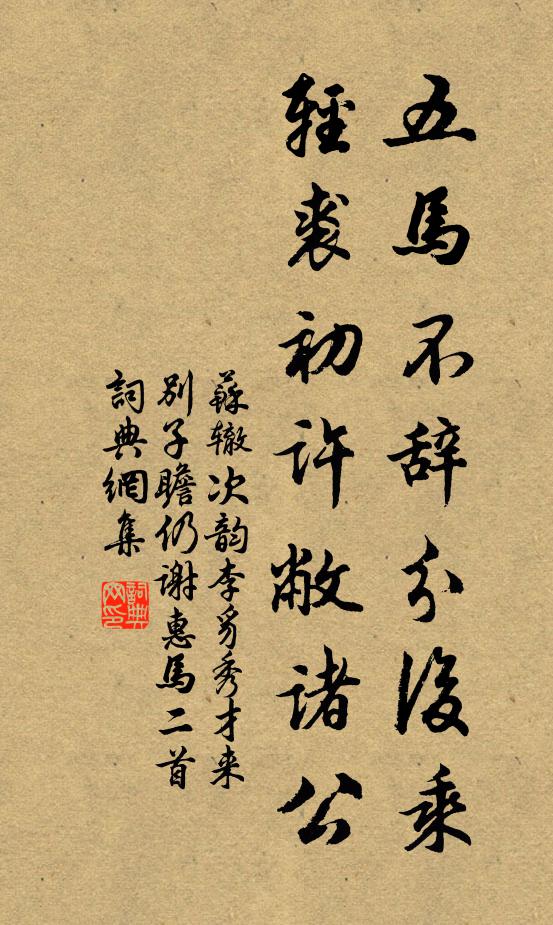 五馬不辞分後乘
輕裘初許敝諸公
蘇辙次韵李豸秀才来
别子瞻仍谢惠馬二首
詞典網集
詞典
网印